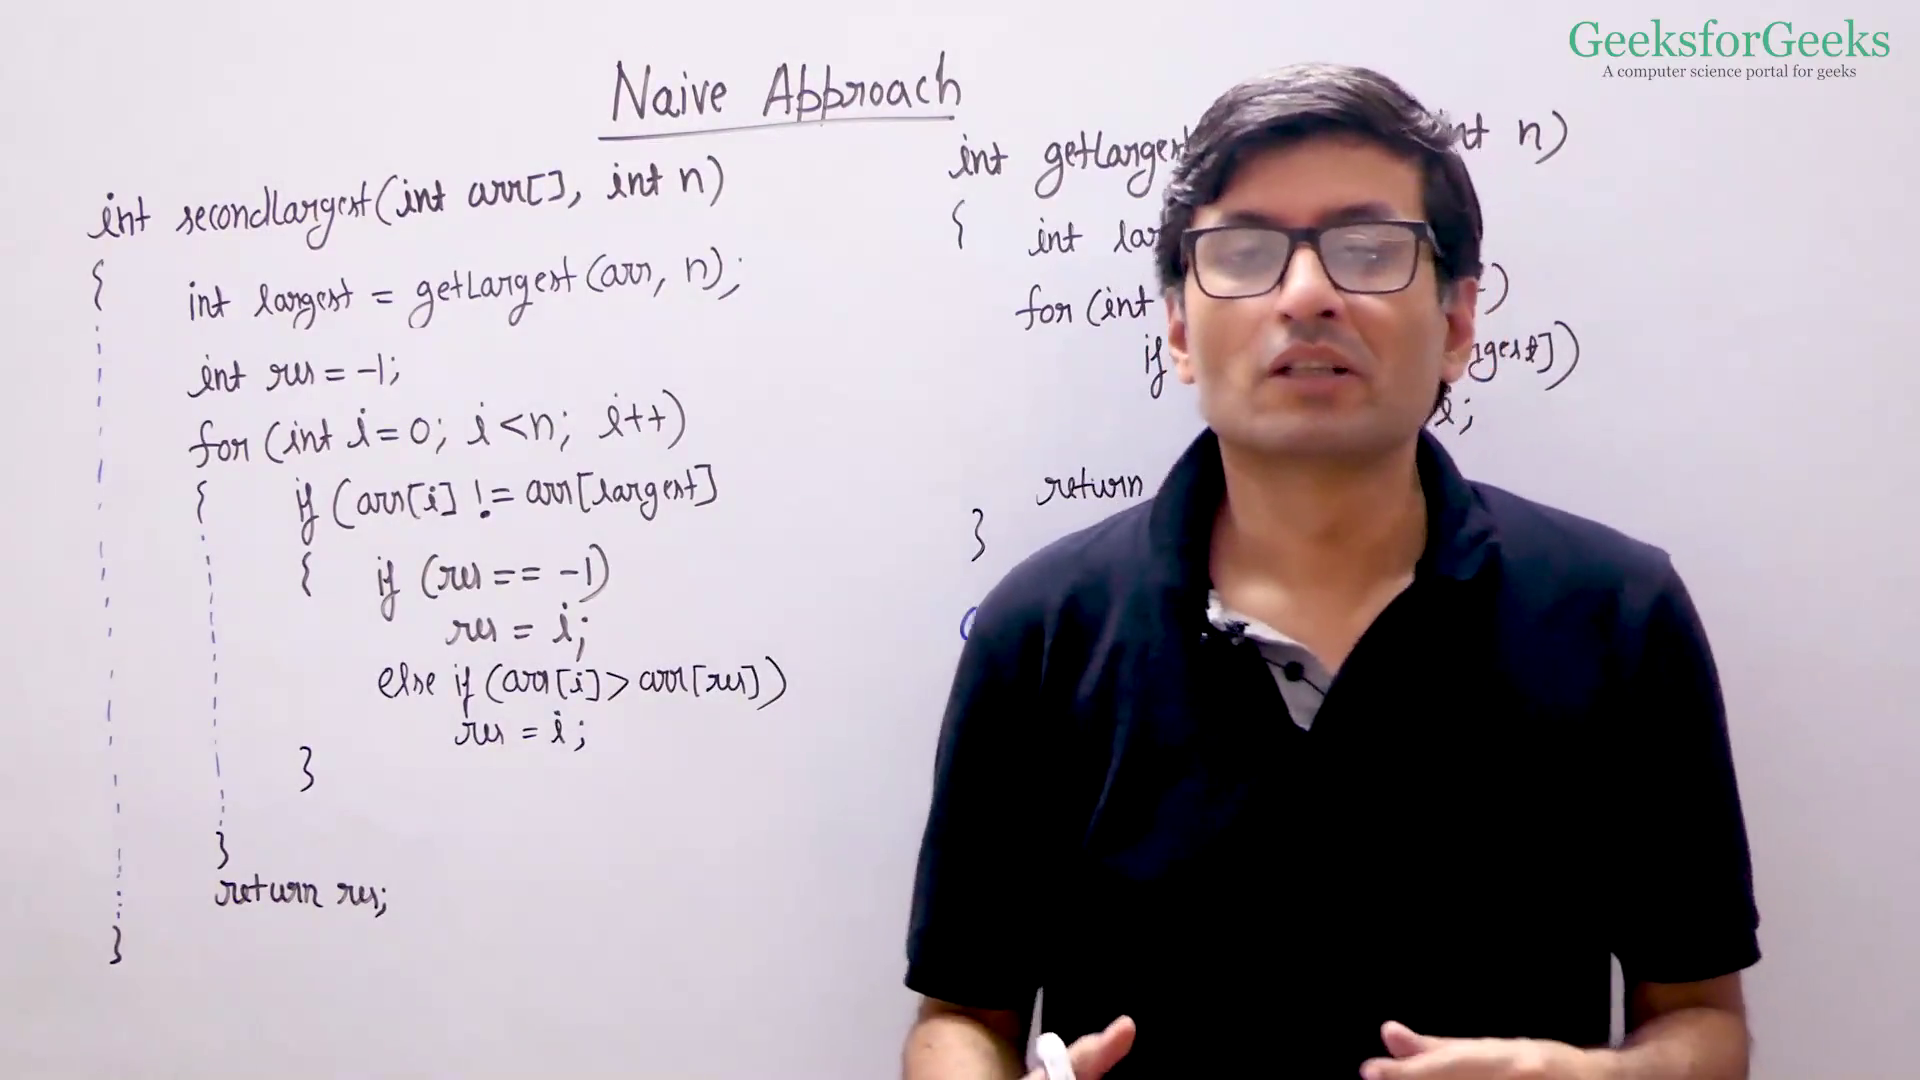 GeeksforGeeks
A computer science portal for geeks
Naive Approach
int secondLargest(int arr[], int n)
{
int largest = getLargest(arr, n);
int res = -1;
for (int i=0; i<n; i++)
{ if (arr[i] != arr[largest]
{ if (res == -1)
res = i;
else if (arr[i] > arr[res])
res = i;
}
}
return res;
}
int n)
{ int
for (int )
if
i;
return
}